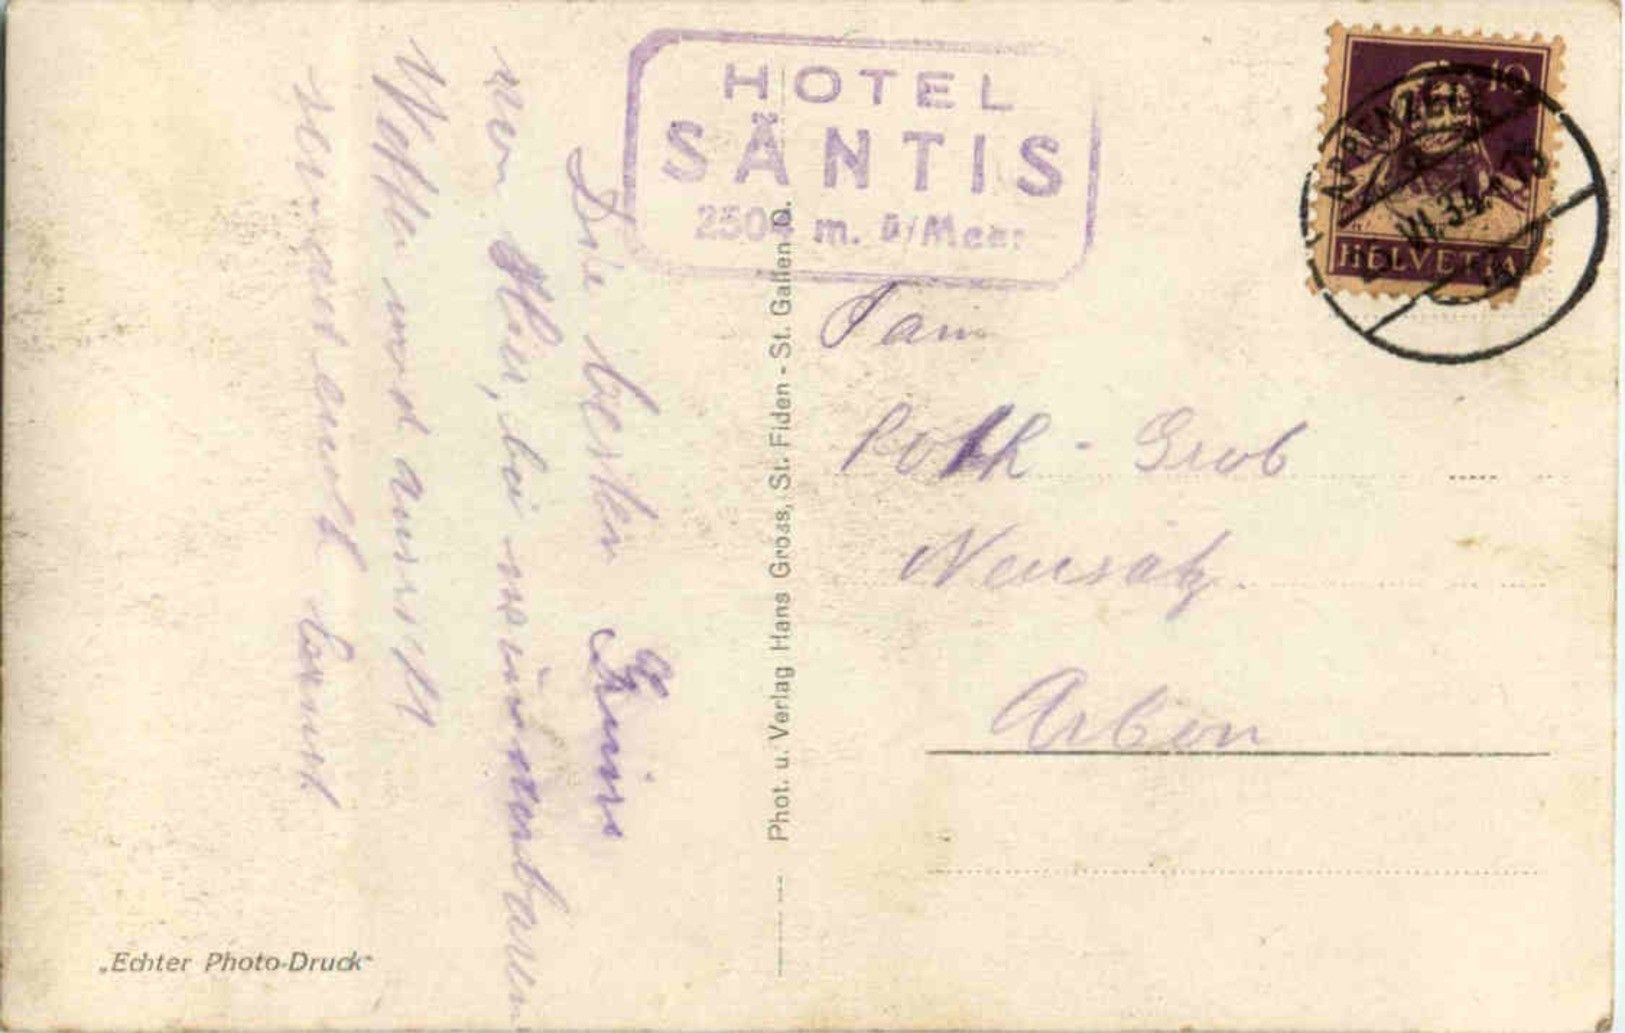 HOTEL
SÄNTIS
2504 m. ü/Meer
10
HELVETIA
APPENZELL
VI.34.
Die besten Grüsse
von hier, bei wunderbarem
Wetter und Aussicht
sendet euch Ernst
Phot. u. Verlag Hans Gross, St. Fiden - St. Gallen O.
Fam
Roth - Grob
Neusatz
Arbon
„Echter Photo-Druck"